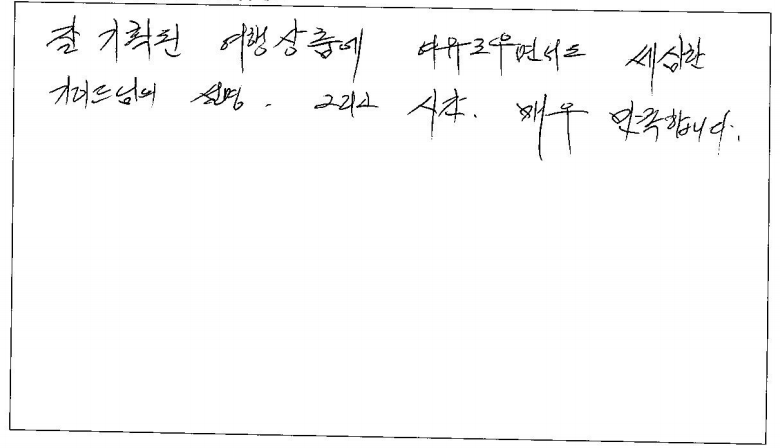 잘 기획된 여행상품에 여유로우면서도 세심한
가이드님의 설명. 그리고 시간. 매우 만족합니다.